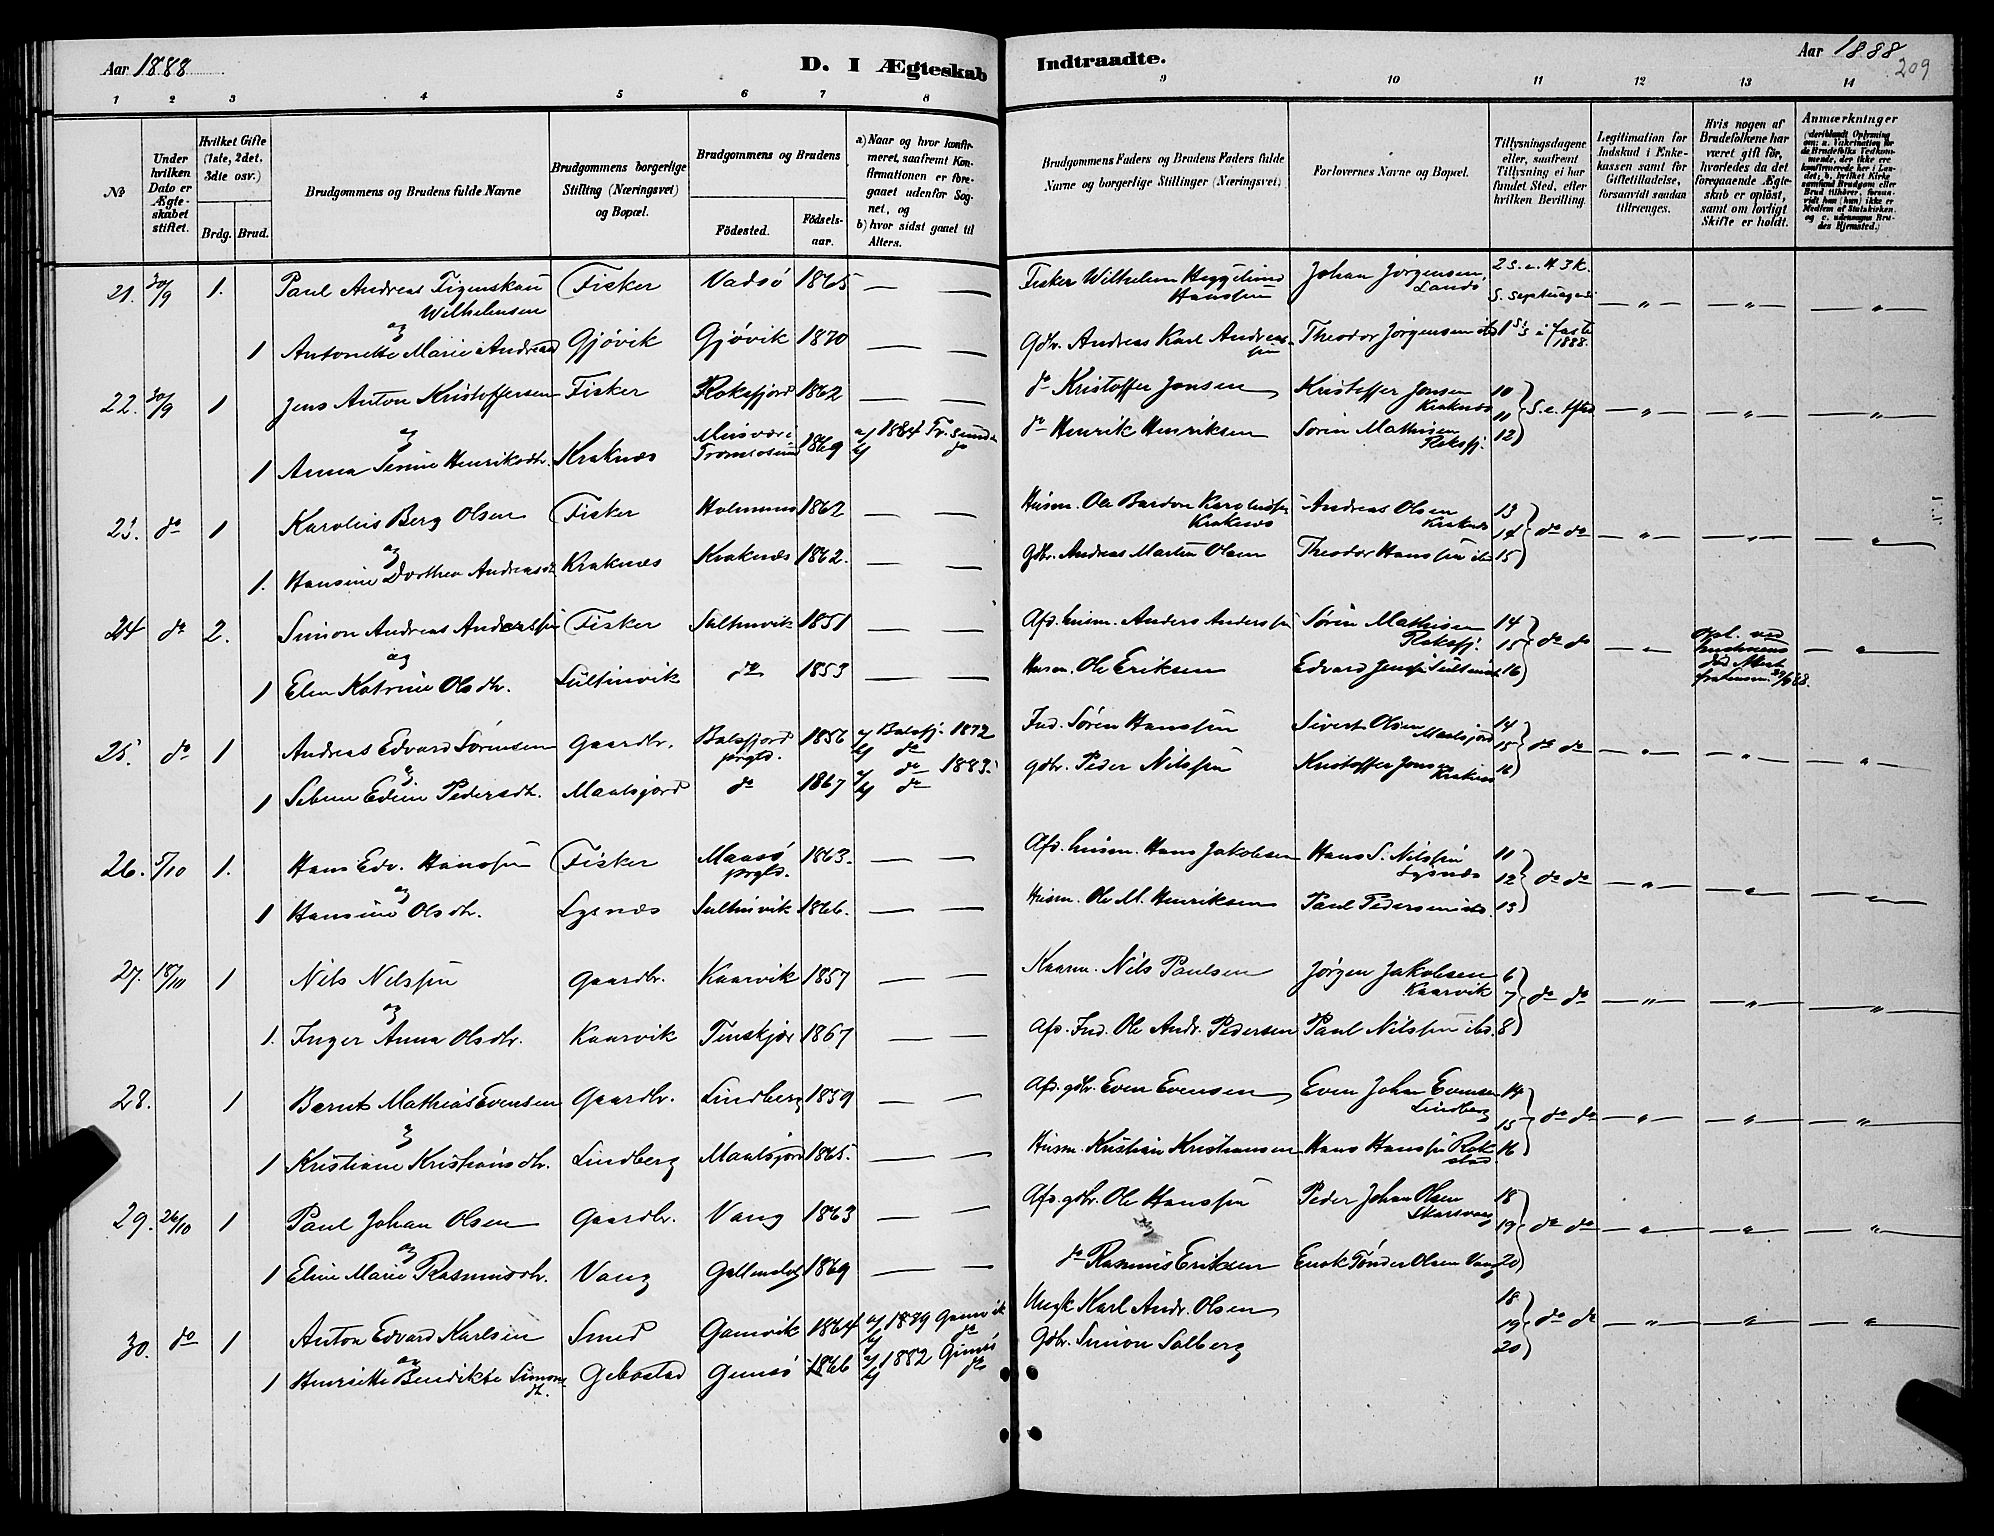 Aar 1888
D. I Ægteskab Indtraadte.
Aar 1888
209
1 2 3 4 5 6 7 8 9 10 11 12 13 14
No
Under hvilken Dato er Ægteskabet stiftet.
Hvilket Gifte (1ste, 2det, 3die osv.)
Brdg. Brud.
Brudgommens og Brudens fulde Navne
Brudgommens borgerlige Stilling (Næringsvei) og Bopæl.
Brudgommens og Brudens
Fødested. Fødselsaar.
a) Naar og hvor konfirmeret, saafremt Konfirmationen er foregaaet udenfor Sognet, og
b) hvor sidst gaaet til Alters.
Brudgommens Faders og Brudens Faders fulde Navne og borgerlige Stillinger (Næringsvei)
Forlovernes Navne og Bopæl.
Tillysningsdagene eller, saafremt Tillysning ei har fundet Sted, efter hvilken Bevilling.
Legitimation for Indskud i Enkekassen samt for Giftetilladelse, forsaavidt saadan tiltrænges.
Hvis nogen af Brudefolkene har været gift før, hvorledes da det foregaaende Ægteskab er opløst, samt om lovligt Skifte er holdt.
Anmærkninger
21. 30/9 1. Paul Andreas Figenskau Wilhelmsen Fisker Vadsø 1865 — — Fisker Wilhelm Heggelund Hanssen Johan Jørgensen Landø 2 S. e. H 3 K. S. Septuages — " — — " — — " —
og
1 Antonette Marie Andreasd Gjøvik Gjøvik 1870 — — Gdbr. Andreas Karl Andreassen Theodor Jørgensen ibd 1 S. i faste 1888.
22. 30/9 1 Jens Anton Kristoffersen Fisker Roksfjord 1862 — — do Kristoffer Jonsen Kristoffer Jonsen Kraknæs 10 11 12 S. e. Tftd — " — — " — — " —
og
1 Anna Serine Henriksdtr. Kraknæs Tromsøsund 1869 a/ 1884 Tr.sund b/ do do Henrik Henriksen Søren Mathisen Roksfj.
23. do 1 Karolius Berg Olsen Fisker 1862 — — Husm. Ole Bardon Kraknes Andreas Olsen Kraknæs 13 14 15 do do — " — — " — — " —
og
1. Hansine Dorthea Andreasd. Kraknæs Kraknæs 1862. — — Gdbr. Andreas Martin Olsen Theodor Hanssen ibd
24 do 2. Simon Andreas Anderssen Fisker Sultinvik 1851 — — Afd. husm. Anders Anderssen Søren Mathisen Roksfj. 14 15 16 do do — " — opl. ved hustruens død — " —
og
1 Elen Katrine Olsdtr. Sultinvik do 1853 — — Husm. Ole Eriksen Edvard Jensen Sultinvik
25. do 1 Andreas Edvard Sørensen Gaardbr. Balsfjord prgld. 1856 a/ Balsfj. 1872 b/ do Ind. Søren Hanssen Sivert Olsen Maalsjord 14 15 16 do do — " — — " — — " —
og
1 Edine Pedersdtr. Maalsjord do 1867 a/ do 1883. b/ do Gdbr. Peder Nilssen Kristoffer Jonsen Kraknæs
26. 5/10 1. Hans Edv. Hanssen Fisker Maasø prgld. 1863. — — Afd. husm. Hans Jakobsen Hans S. Nilssen Lysnæs 11 12 13 do do — " — — " — — " —
og
1 Hansine Olsdtr. Lysnæs Sultinvik 1866. — — Husm. Ole M. Henriksen Paul Pedersen ibd.
27. 18/10 1 Nils Nilssen Gaardbr. Kaarvik 1857 — — Kaarm. Nils Paulsen Jørgen Jakobsen Kaarvik 6 7 8 do do — " — — " — — " —
og
1. Inger Anna Olsdtr. Kaarvik Tenskjær 1867 — — Afd. Ind. Ole Andr. Pedersen Paul Nilssen ibd.
28. 1 Bernt Mathias Evensen Gaardbr. Lindberg 1859 — — Afd. gdbr. Even Evensen Even Johan Evensen Lindberg 14 15 16 do do — " — — " — — " —
og
1 Kristiane Kristiansdtr. Lindberg Maalsjord 1865. — — Husm. Kristian Kristiansen Hans Hanssen Rokstad
29. 26/10 1 Paul Johan Olsen Gaardbr. Vang 1863 — — Afd. gdbr. Ole Hanssen Peder Johan Olsen Skarsvaag 18 19 20 do do — " — — " — — " —
og
1 Eline Marie Rasmusdtr. Vang 1869 — — do Rasmus Eriksen Enok Tønder Olsen Vang
30. do 1 Anton Edvard Karlsen Smed Gamvik 1864 a/ 1879 Gamvik b/ do Ungk Karl Andr. Olsen 18 19 20 do do — " — — " — — " —
og
1 Henriette Benedikte Simonsdtr. Gebostad Gimsø 1866 a/ 1882 Gimsø b/ do Gdbr. Simon Solberg